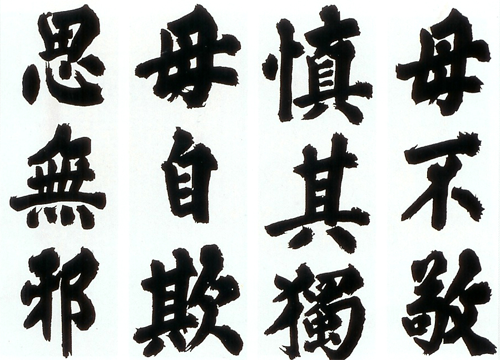 毋不敬
慎其獨
毋自欺
思無邪